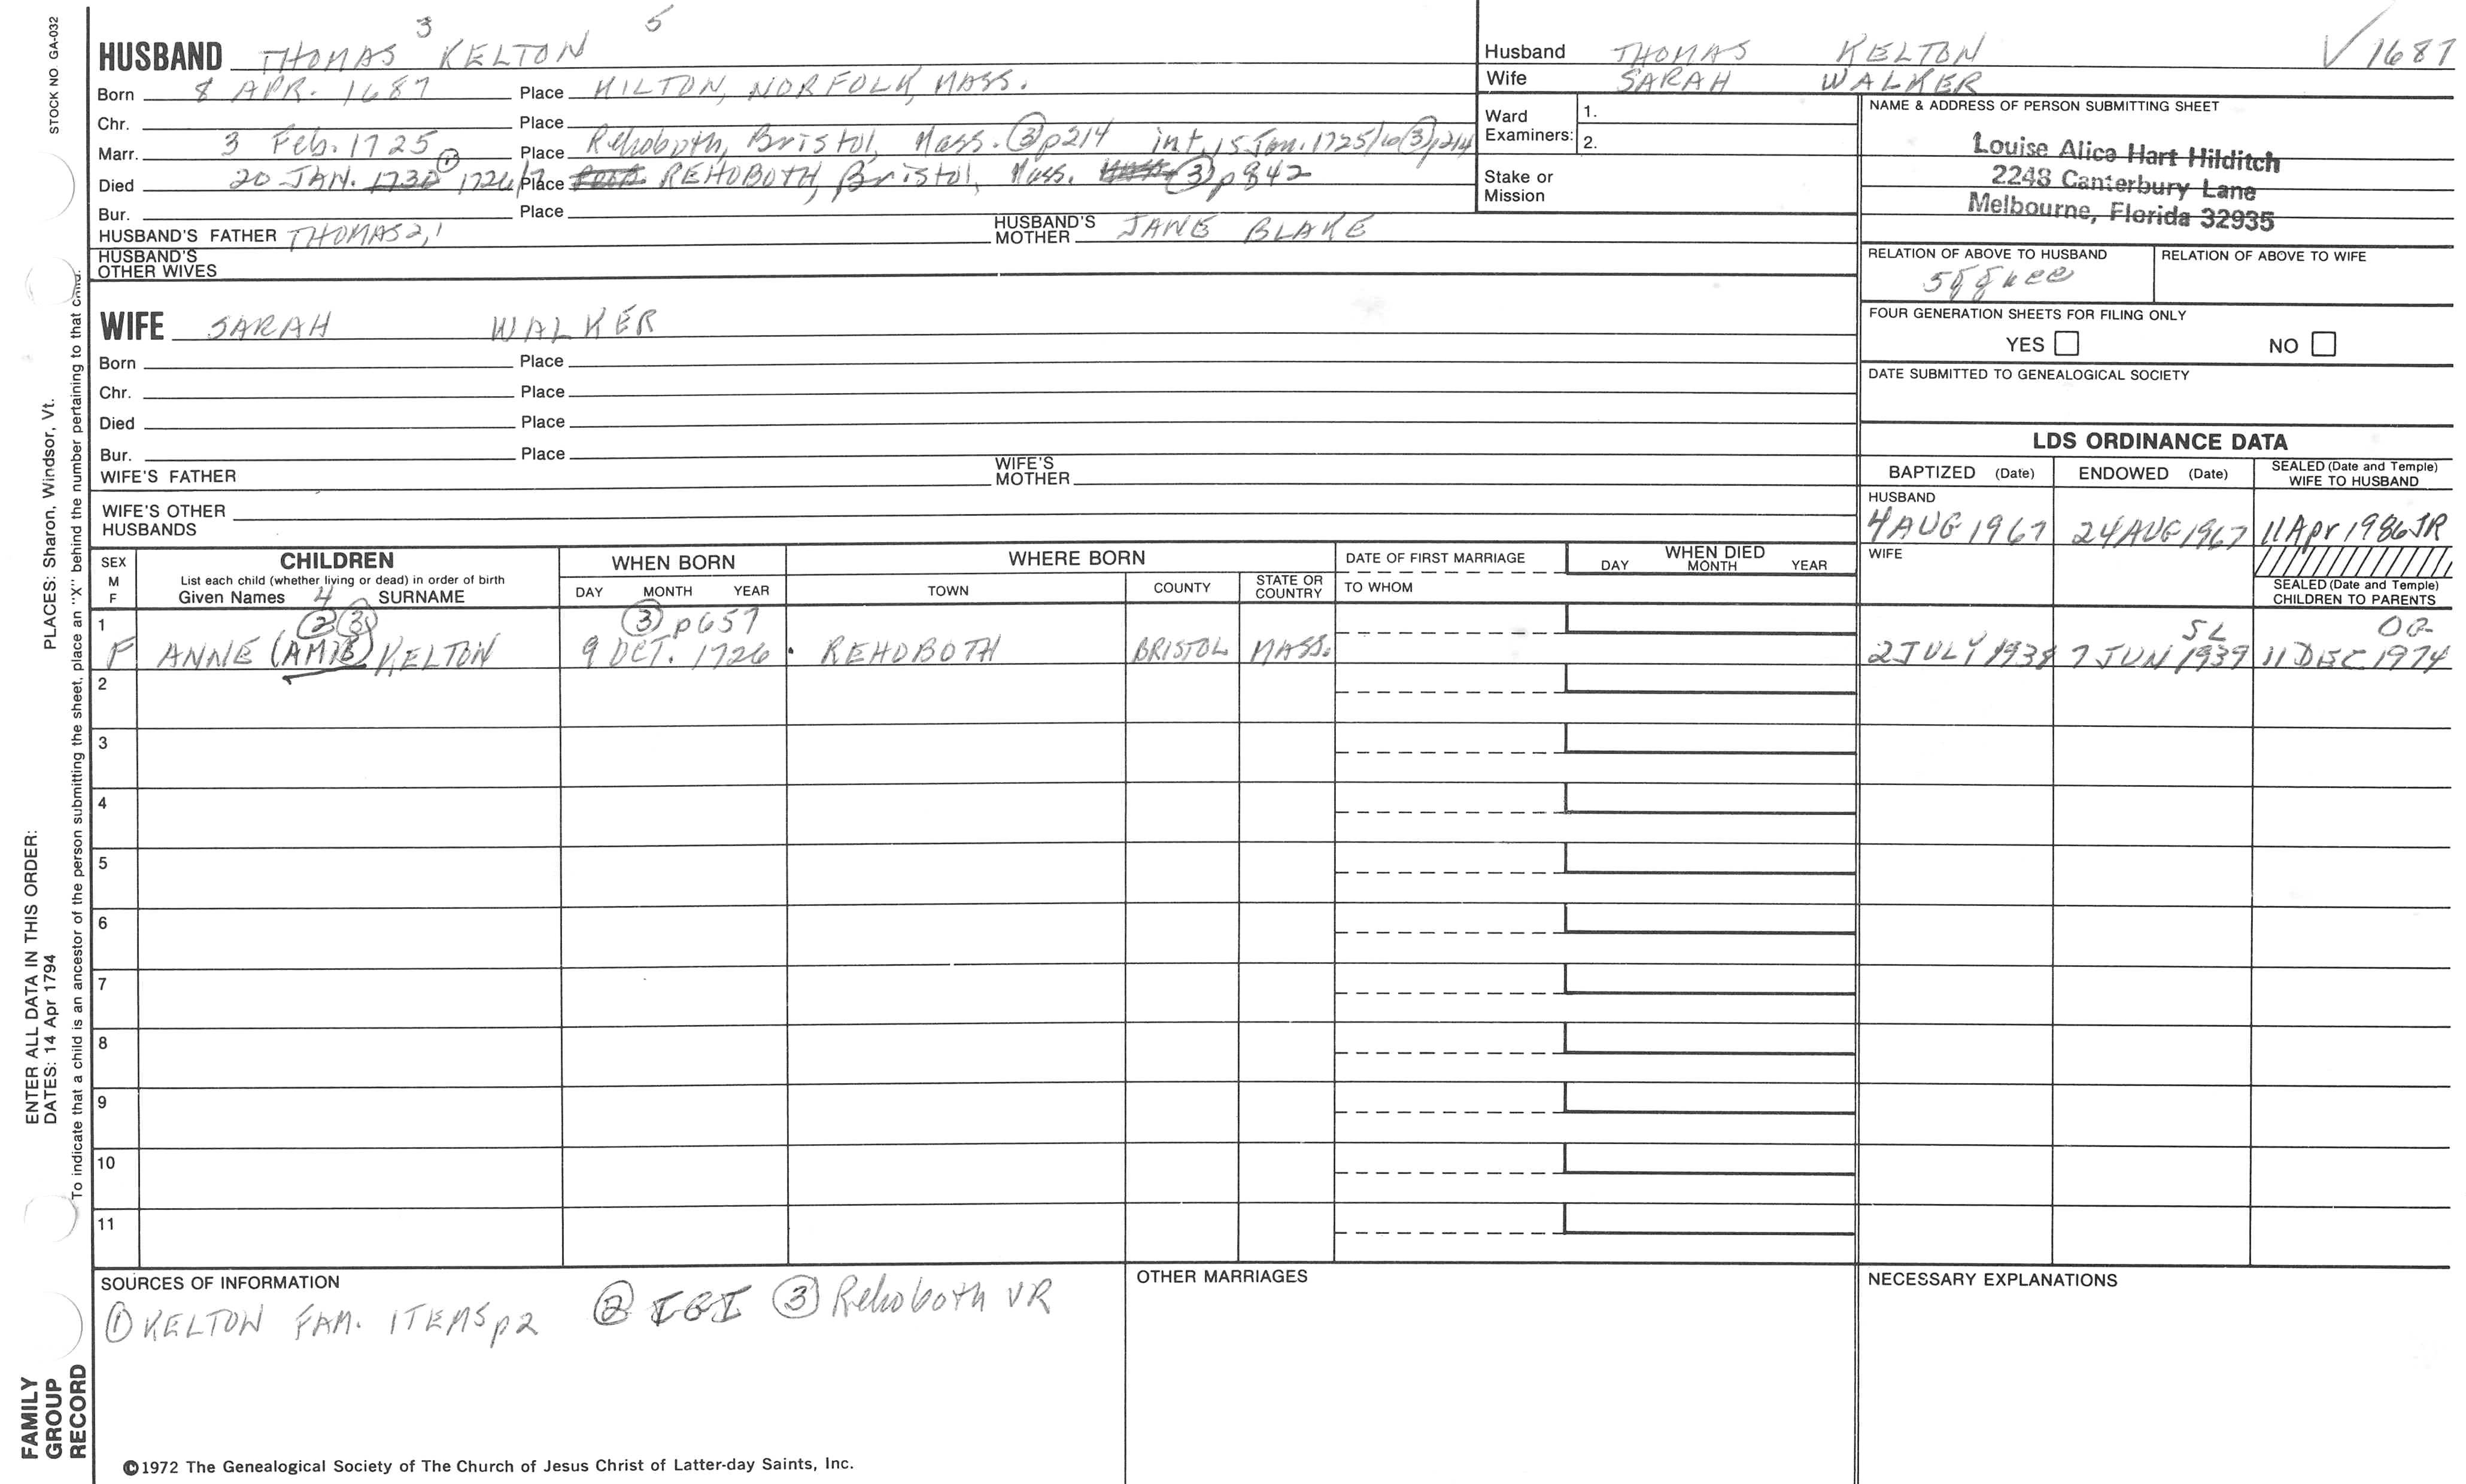 STOCK NO GA-032
PLACES: Sharon, Windsor, Vt.
ENTER ALL DATA IN THIS ORDER:
DATES: 14 Apr 1794
To indicate that a child is an ancestor of the person submitting the sheet, place an "X" behind the number pertaining to that child.
FAMILY
GROUP
RECORD
3 5
HUSBAND THOMAS KELTON
Born 8 APR. 1687 Place MILTON, NORFOLK, MASS.
Chr. Place
Marr. 3 Feb. 1725 Place Rehoboth, Bristol, Mass. ③ p214 int, 15 Jan. 1725/6 ③ p214
Died 20 JAN. 1732 ① 1726/7 Place REHOBOTH, Bristol, Mass. ③ p842
Bur. Place
HUSBAND'S FATHER THOMAS 2,1 HUSBAND'S MOTHER JANE BLAKE
HUSBAND'S
OTHER WIVES
Husband THOMAS KELTON √ 1687
Wife SARAH WALKER
Ward
Examiners: 1.
2.
Stake or
Mission
NAME & ADDRESS OF PERSON SUBMITTING SHEET
Louise Alice Hart Hilditch
2248 Canterbury Lane
Melbourne, Florida 32935
RELATION OF ABOVE TO HUSBAND RELATION OF ABOVE TO WIFE
FOUR GENERATION SHEETS FOR FILING ONLY
YES NO
DATE SUBMITTED TO GENEALOGICAL SOCIETY
WIFE SARAH WALKER
Born Place
Chr. Place
Died Place
Bur. Place
WIFE'S FATHER WIFE'S MOTHER
WIFE'S OTHER
HUSBANDS
LDS ORDINANCE DATA
BAPTIZED (Date) ENDOWED (Date) SEALED (Date and Temple) WIFE TO HUSBAND
HUSBAND
4 AUG 1967 24 AUG 1967 11 Apr 1986 JR
WIFE
SEALED (Date and Temple)
CHILDREN TO PARENTS
SEX
M
F
CHILDREN
List each child (whether living or dead) in order of birth
Given Names 4 SURNAME
WHEN BORN
DAY MONTH YEAR
WHERE BORN
TOWN COUNTY STATE OR COUNTRY
DATE OF FIRST MARRIAGE
TO WHOM
WHEN DIED
DAY MONTH YEAR
1 ② ③ ③ p657 SL
F ANNE (AMIE) KELTON 9 OCT. 1726 REHOBOTH BRISTOL MASS. 2 JULY 1938 7 JUN 1939 11 DEC 1974
2
3
4
5
6
7
8
9
10
11
SOURCES OF INFORMATION
① KELTON FAM. ITEMS p2 ② IGI ③ Rehoboth VR
OTHER MARRIAGES
NECESSARY EXPLANATIONS
©1972 The Genealogical Society of The Church of Jesus Christ of Latter-day Saints, Inc.